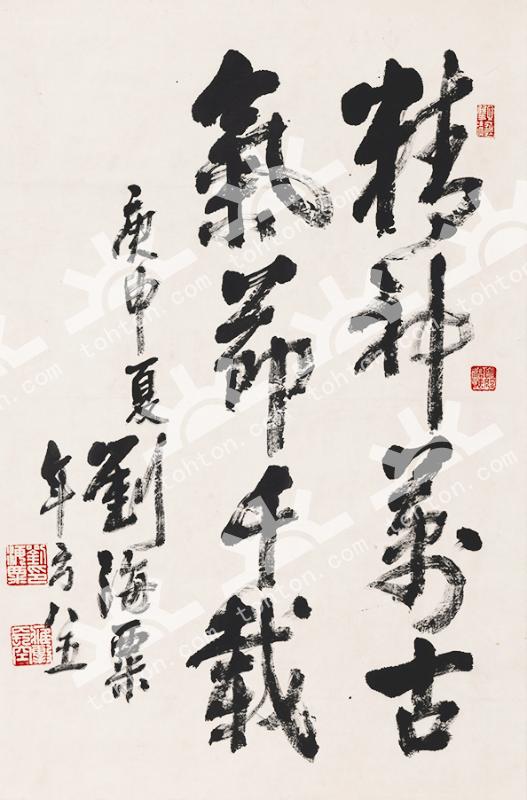 精神萬古
氣節千載
庚申夏劉海粟
年方八五
tohton.com